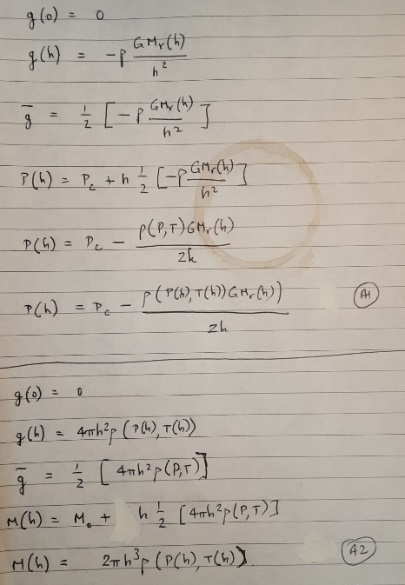 g(0) = 0
g(h) = -ρ GMr(h) / h²
g̅ = ½ [-ρ GMr(h) / h²]
P(h) = Pc + h ½ [-ρ GMr(h) / h²]
P(h) = Pc - ρ(P,T)GMr(h) / 2h
P(h) = Pc - ρ(P(h),T(h))GMr(h)) / 2h (A1)
g(0) = 0
g(h) = 4πh²ρ (P(h),T(h))
g̅ = ½ [4πh²ρ(P,T)]
M(h) = M₀ + h ½ [4πh²ρ(P,T)]
M(h) = 2πh³ρ (P(h),T(h)) (A2)